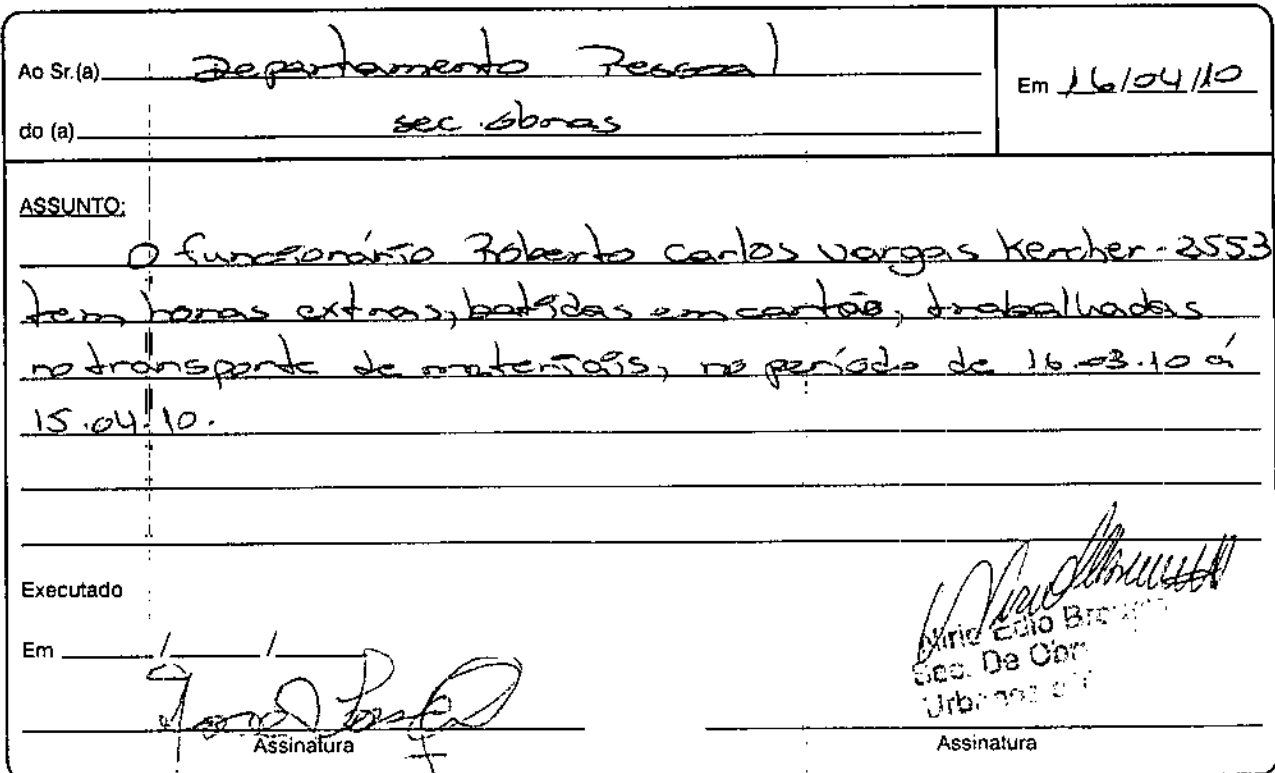 Ao Sr.(a) Departamento Pessoal
Em 16/04/10
do (a) sec. obras
ASSUNTO:
O funcionário Roberto Carlos Vargas Kercher - 2553
tem horas extras, batidas em cartão, trabalhadas
no transporte de materiais, no período de 16.03.10 á
15.04.10.
Executado
Em / /
Sec. De Obr
Assinatura
Assinatura